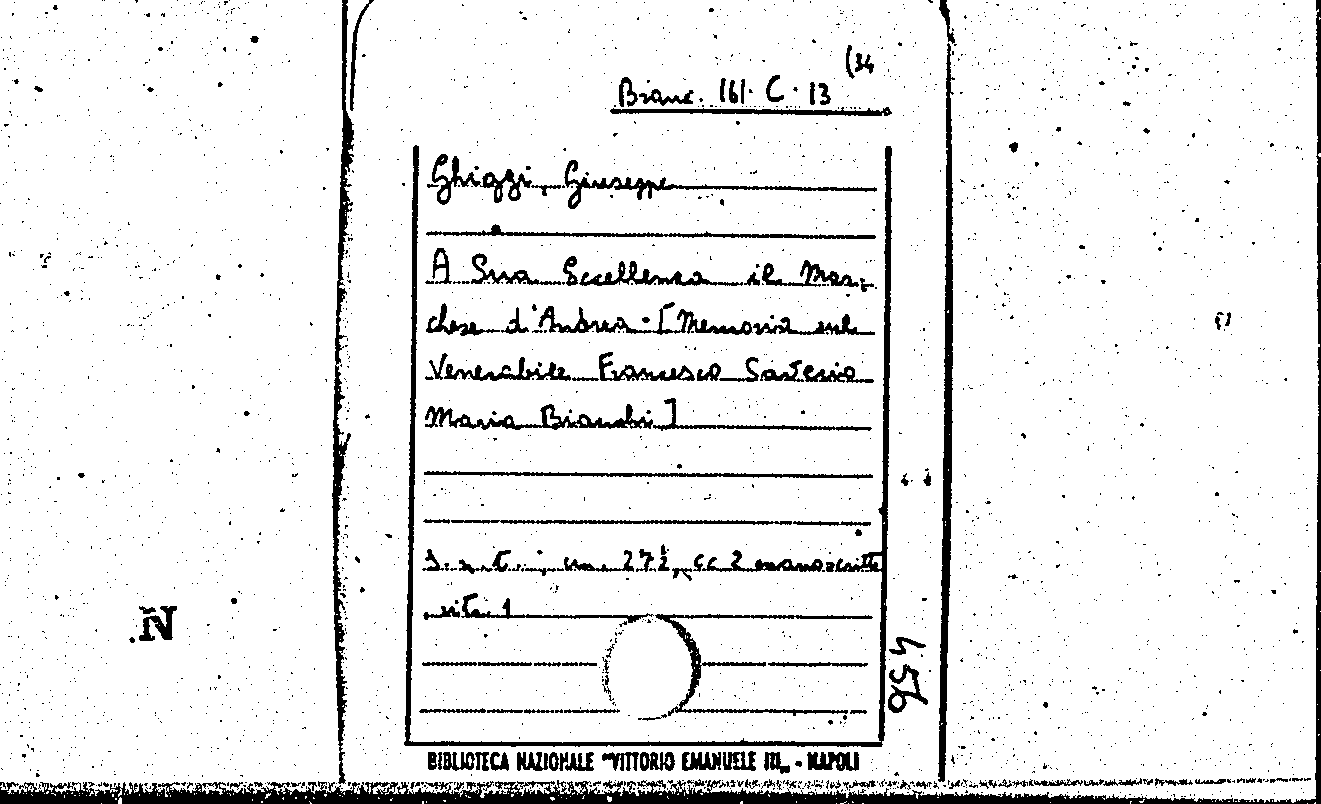 (34
Branc. 161. C. 13
Ghiggi, Giuseppe
A Sua Eccellenza il Mar-
chese d'Andrea - [Memoria sul
Venerabile Francesco Saverio
Maria Bianchi]
s. n. t. ; cm. 27½, cc 2 manoscritte
456
BIBLIOTECA NAZIONALE "VITTORIO EMANUELE III" - NAPOLI
N